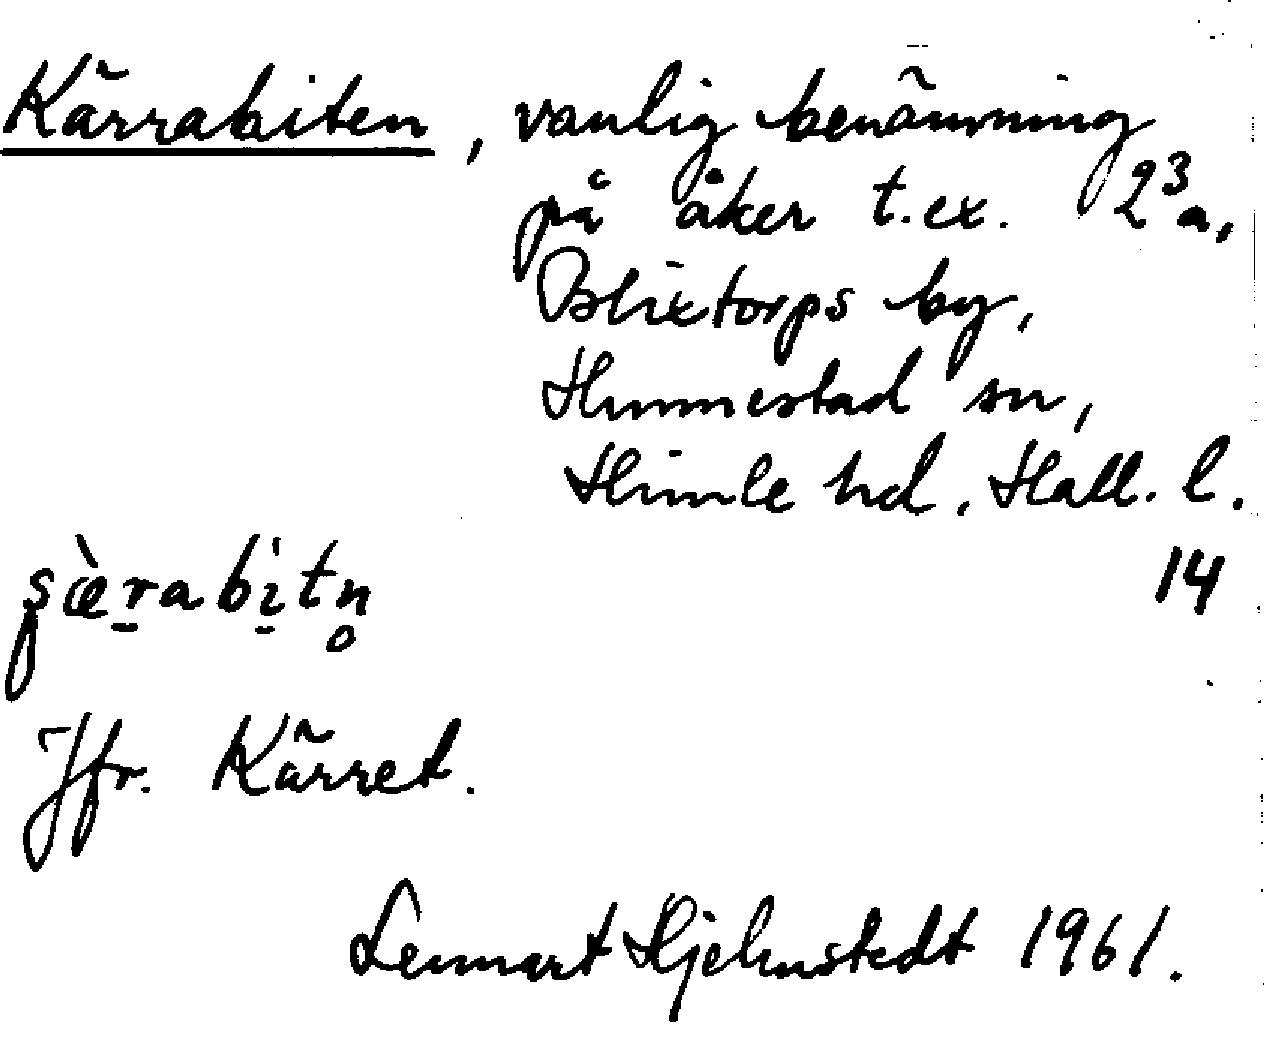 Kärrabiten, vanlig benämning
på åker t.ex. 2³a,
Blixtorps by,
Hunnestad sn,
Himle hd. Hall. l.
14
şæ̀ṟabi̱tn̥
Jfr. Kärret.
Lennart Hjelmstedt 1961.